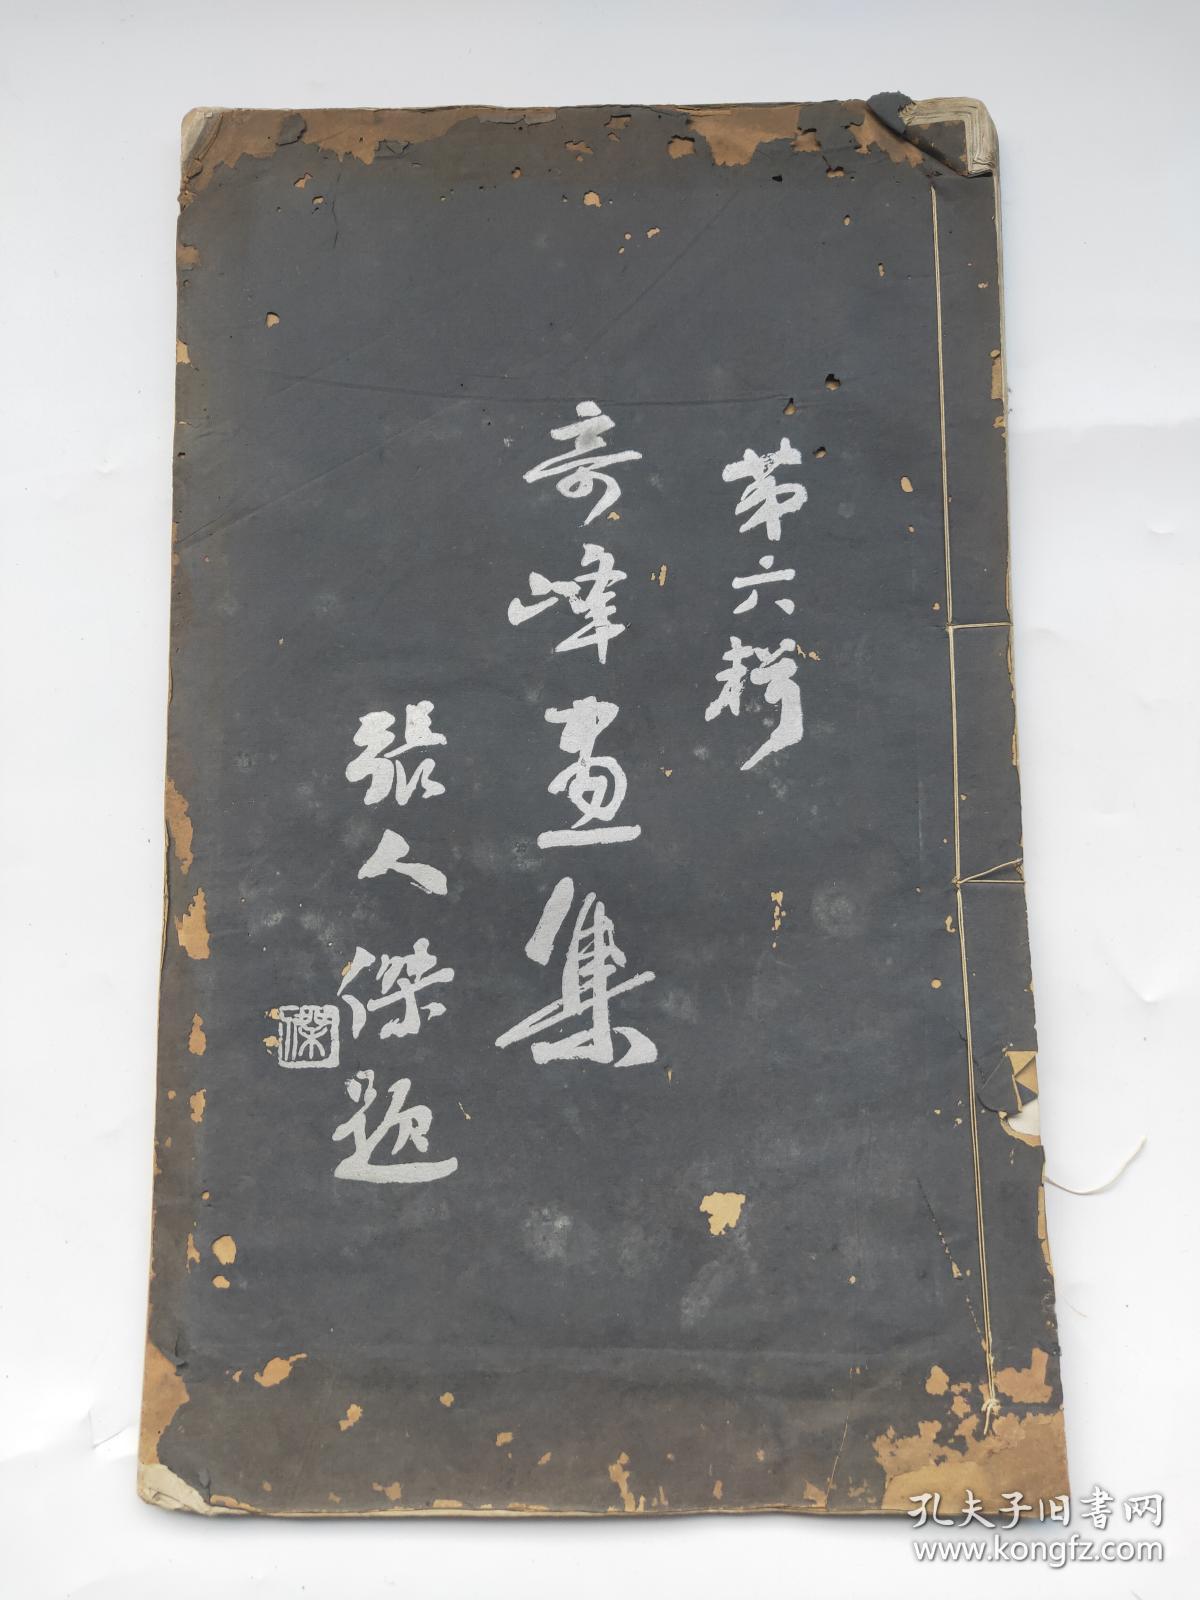 第六辑
奇峰畫集
張人傑題
傑
孔夫子旧书网
www.kongfz.com